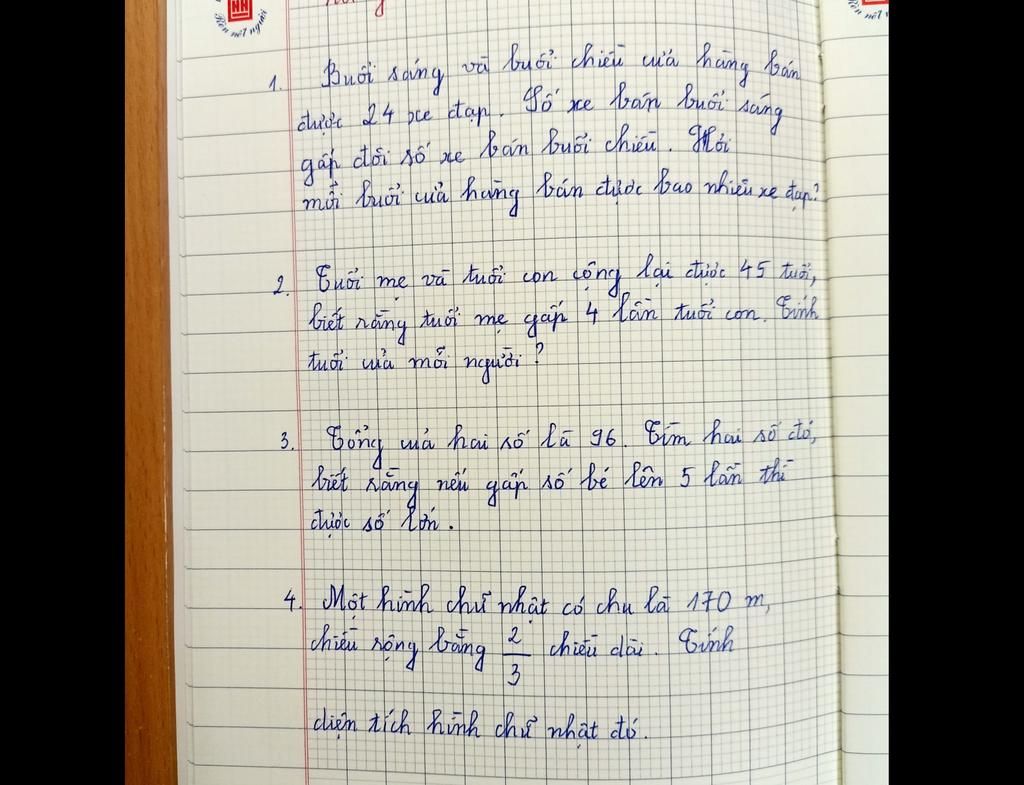 Rèn nét người
Rèn nét
1. Buổi sáng và buổi chiều cửa hàng bán
được 24 xe đạp. Số xe bán buổi sáng
gấp đôi số xe bán buổi chiều. Hỏi
mỗi buổi cửa hàng bán được bao nhiêu xe đạp?
2. Tuổi mẹ và tuổi con cộng lại được 45 tuổi,
biết rằng tuổi mẹ gấp 4 lần tuổi con. Tính
tuổi của mỗi người?
3. Tổng của hai số là 96. Tìm hai số đó,
biết rằng nếu gấp số bé lên 5 lần thì
được số lớn.
4. Một hình chữ nhật có chu là 170 m,
chiều rộng bằng 2/3 chiều dài. Tính
diện tích hình chữ nhật đó.